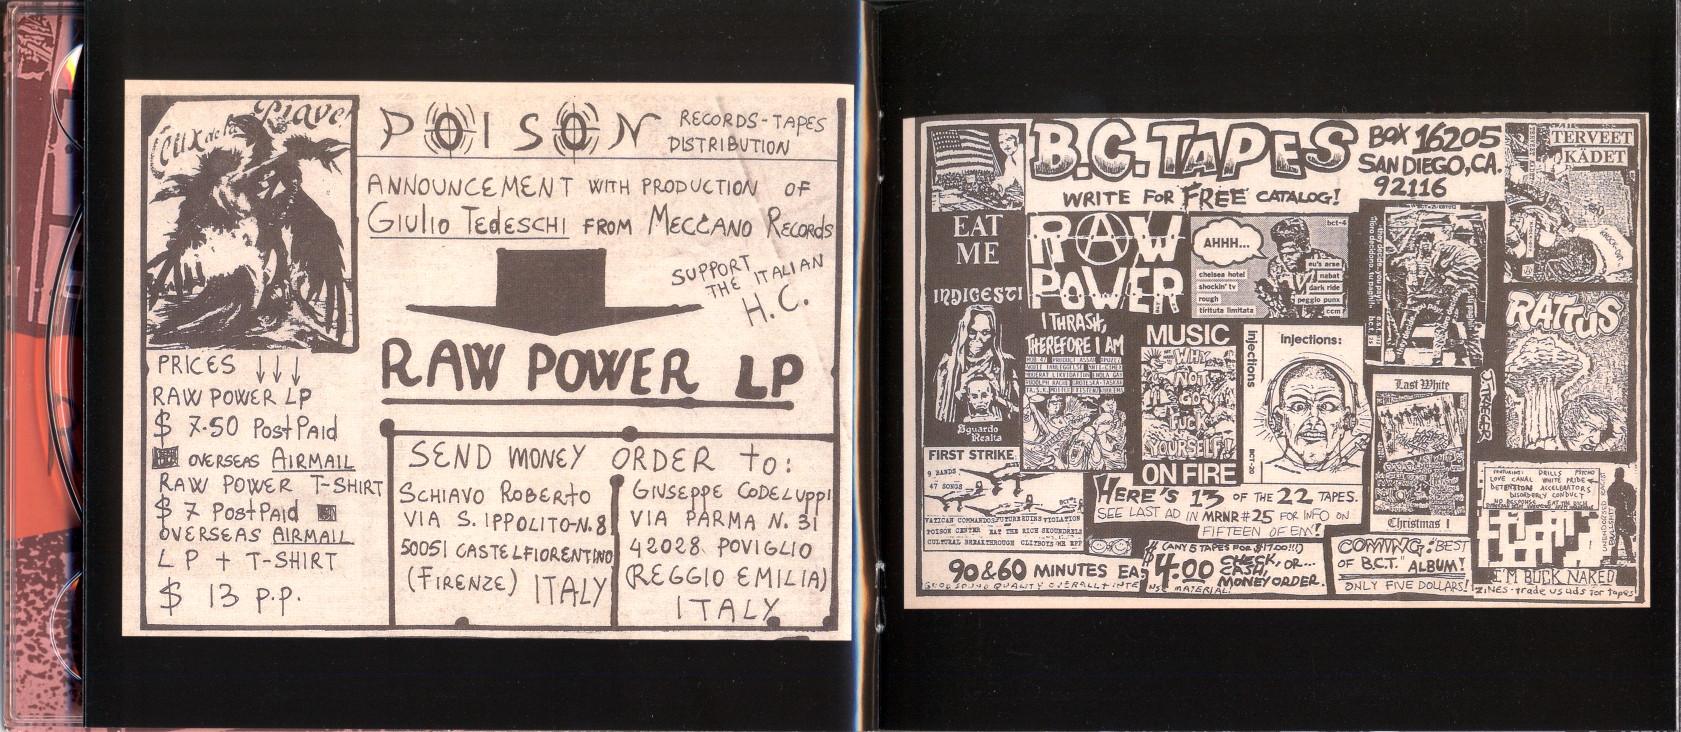 Piave!
POISON
RECORDS-TAPES
DISTRIBUTION
ANNOUNCEMENT WITH PRODUCTION OF
GIULIO TEDESCHI FROM MECCANO RECORDS
SUPPORT
THE ITALIAN
H.C.
RAW POWER LP
PRICES ↓↓↓
RAW POWER LP
$ 7.50 PostPaid
OVERSEAS AIRMAIL
RAW POWER T-SHIRT
$ 7 PostPaid
OVERSEAS AIRMAIL
LP + T-SHIRT
$ 13 P.P.
SEND MONEY ORDER to:
SCHIAVO ROBERTO
VIA S. IPPOLITO-N.8
50051 CASTELFIORENTINO
(FIRENZE) ITALY
GIUSEPPE CODELUPPI
VIA PARMA N. 31
42028 POVIGLIO
(REGGIO EMILIA)
ITALY
B.C.TAPES
BOX 16205
SAN DIEGO,CA.
92116
WRITE FOR FREE CATALOG!
EAT
ME
RAW
POWER
bct-4
AHHH...
chelsea hotel
shockin' tv
rough
tirituta limitata
eu's arse
nabat
dark ride
peggio punx
ccm
TERVEET
KÄDET
KNOCK-OUT
INDIGESTI
Sguardo
Realta
I THRASH,
THEREFORE I AM
MUSIC
WHY
NOT
GO
FUCK
YOURSELF!
ON FIRE
Injections
Injections:
BCT-20
Last White
Christmas I
RATTUS
FIRST STRIKE
9 BANDS
47 SONGS
VATICAN COMMANDOS FUTURE RUINS VIOLATION
POISON CENTER EAT THE RICH SKOUNDRELS
CULTURAL BREAKTHROUGH CLITBOYS ME EFF
HERE'S 13 OF THE 22 TAPES.
SEE LAST AD IN MRNR#25 FOR INFO ON
FIFTEEN OF EM!
FEATURING: DRILLS PSYCHO
LOVE CANAL WHITE PRIDE
DETENTION ACCELERATORS
DISORDERLY CONDUCT
NO RESPONSE EAT THE RICH
I'M BUCK NAKED
90&60 MINUTES EA.
$4.00
(ANY 5 TAPES FOR $17.00!!!)
CHECK, OR...
CASH,
MONEY ORDER.
GOOD SOUND QUALITY OVERALL+INTENSE MATERIAL!
COMING: "BEST
OF B.C.T." ALBUM!
ONLY FIVE DOLLARS!
ZINES-trade us ads for tapes